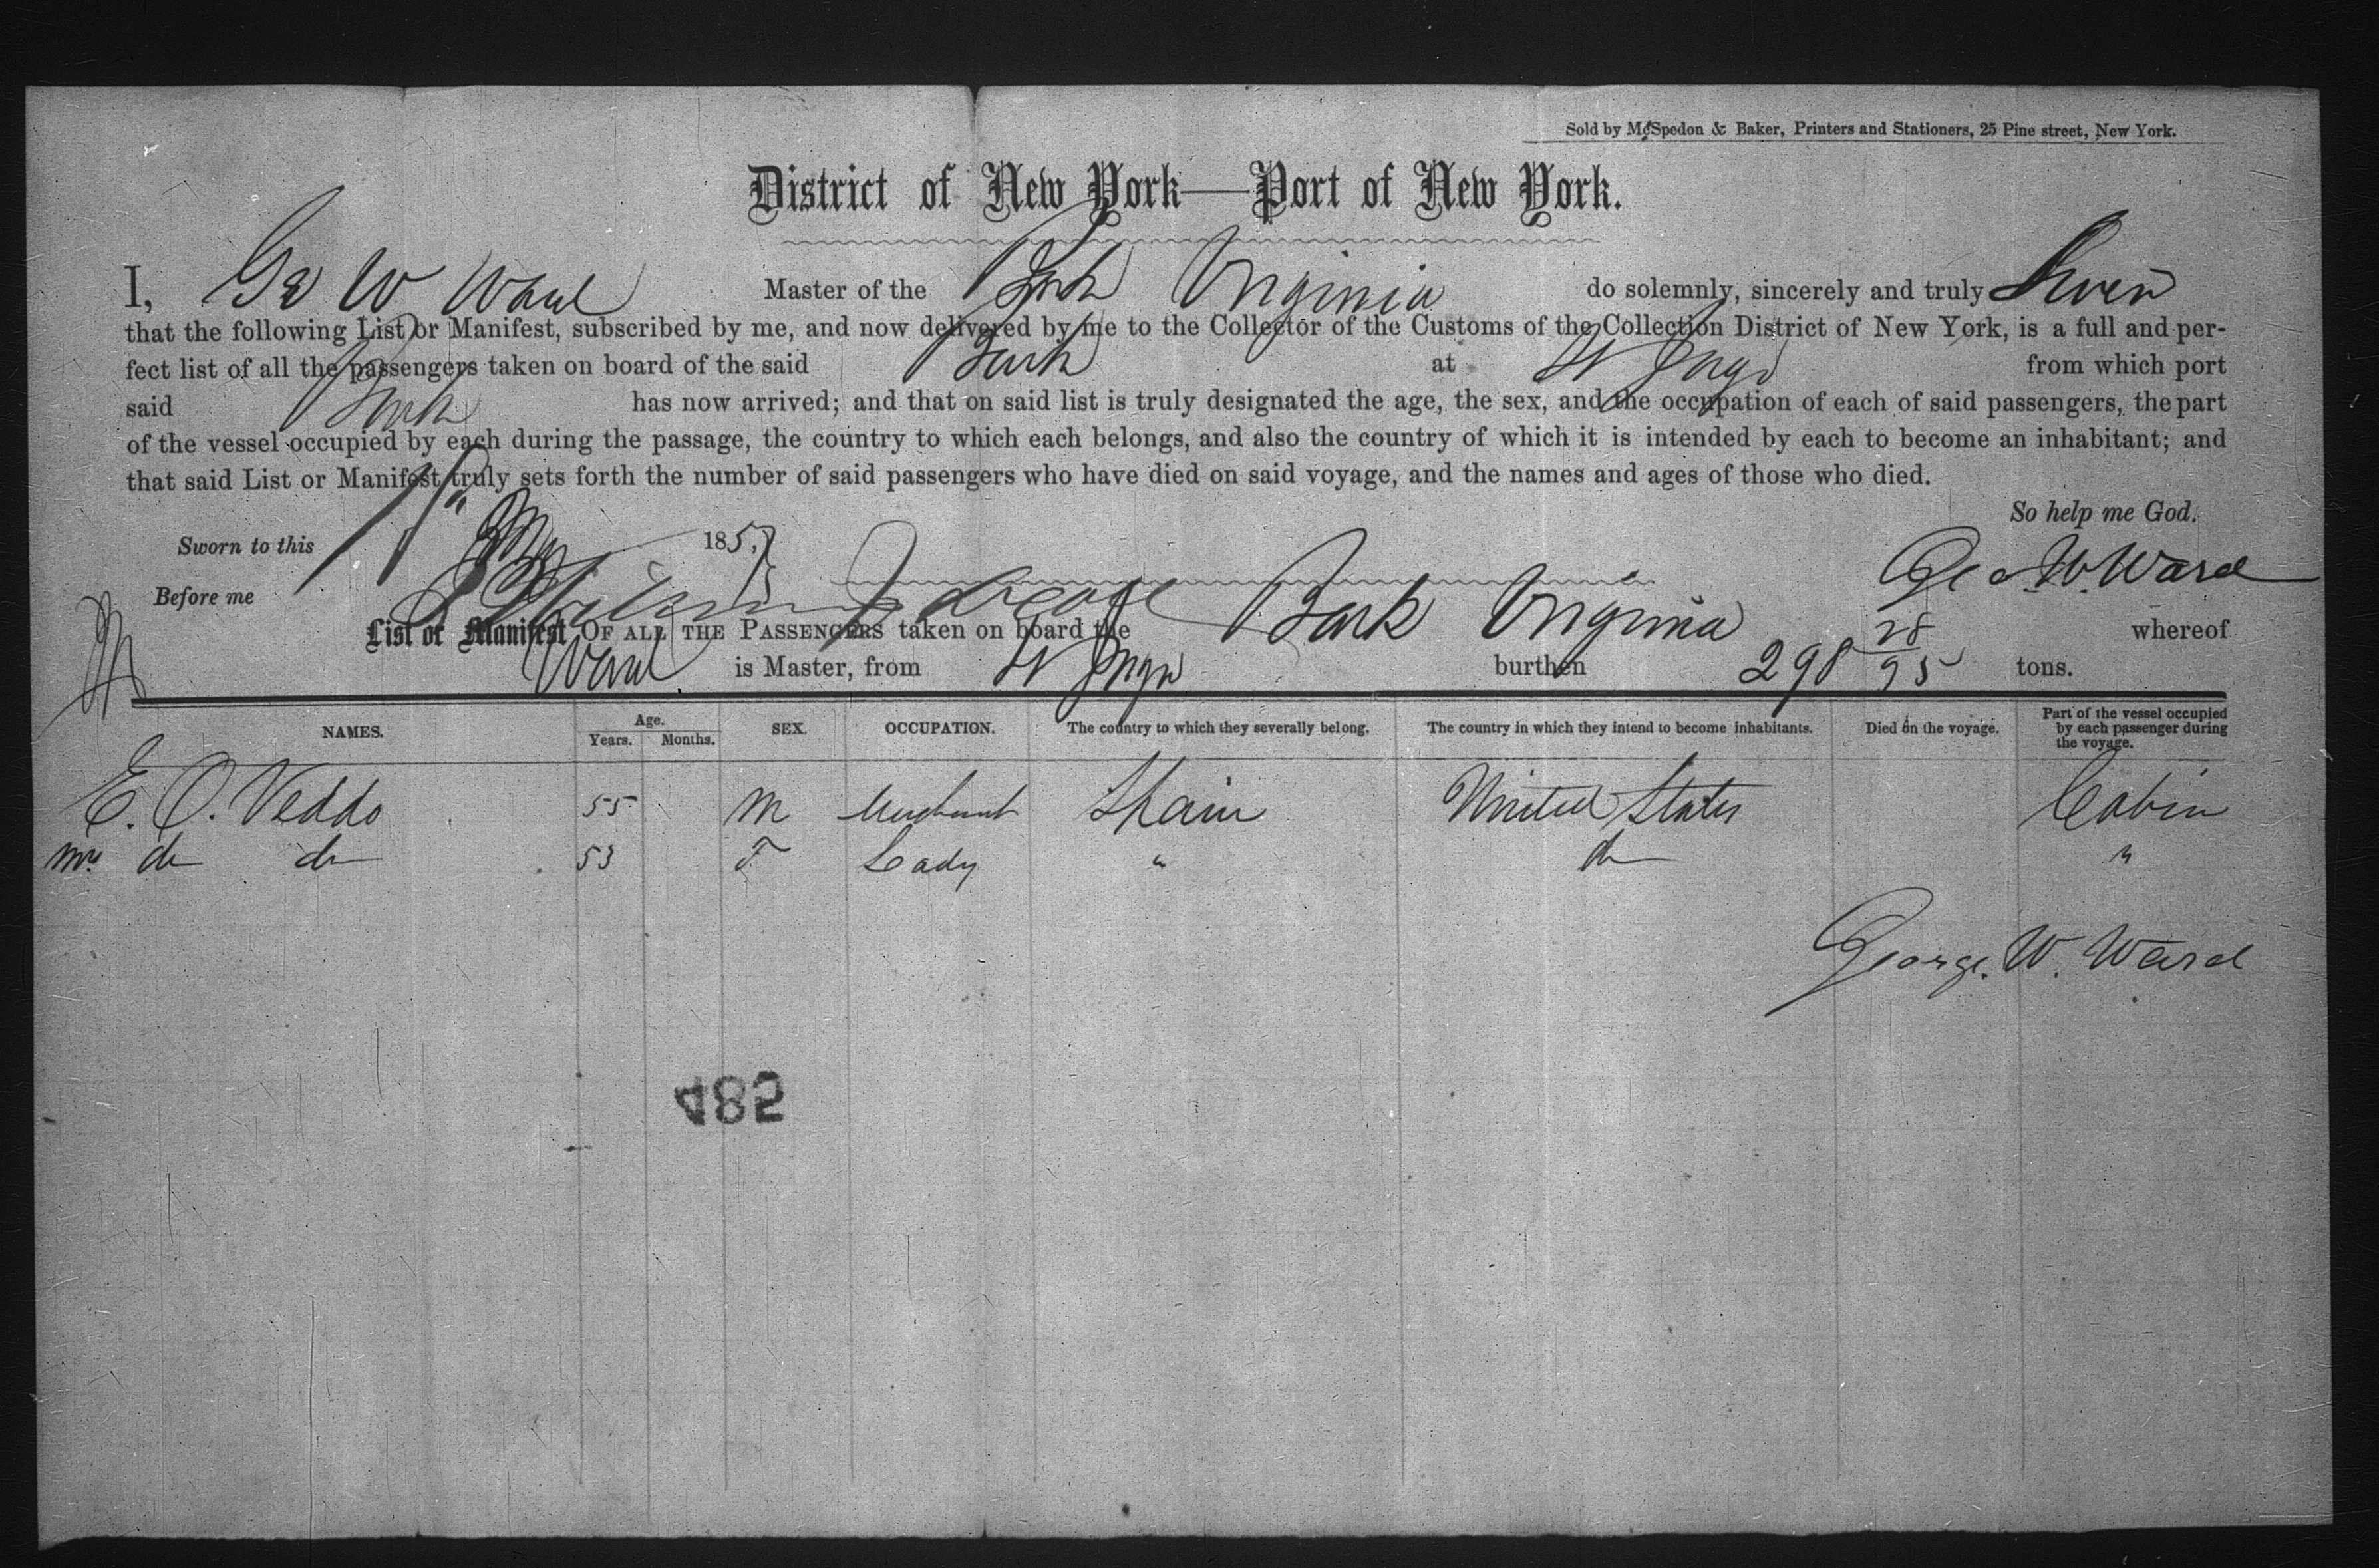 Sold by McSpedon & Baker, Printers and Stationers, 25 Pine street, New York.
District of New York—Port of New York.
I, Geo W Ward Master of the Bark Virginia do solemnly, sincerely and truly Swear
that the following List or Manifest, subscribed by me, and now delivered by me to the Collector of the Customs of the Collection District of New York, is a full and per-
fect list of all the passengers taken on board of the said Bark at St Jago from which port
said Bark has now arrived; and that on said list is truly designated the age, the sex, and the occupation of each of said passengers, the part
of the vessel occupied by each during the passage, the country to which each belongs, and also the country of which it is intended by each to become an inhabitant; and
that said List or Manifest truly sets forth the number of said passengers who have died on said voyage, and the names and ages of those who died.
So help me God.
Sworn to this 185
Before me Geo. W. Ward
List or Manifest OF ALL THE PASSENGERS taken on board the Bark Virginia whereof
Ward is Master, from St Jago burthen 298 28/95 tons.
NAMES. Age. Years. Months. SEX. OCCUPATION. The country to which they severally belong. The country in which they intend to become inhabitants. Died on the voyage. Part of the vessel occupied by each passenger during the voyage.
E. O. Veddo 55 M Merchant Spain United States Cabin
Mrs do do 53 F Lady " do "
George. W. Ward
485